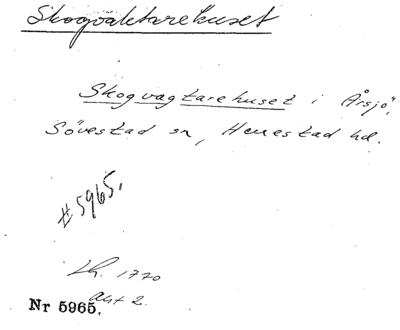 Skogväktarehuset
Skogvagtarehuset i Årsjö,
Sövestad sn, Herrestad hd.
#5965.
Lh. 1770
akt 2.
Nr 5965.